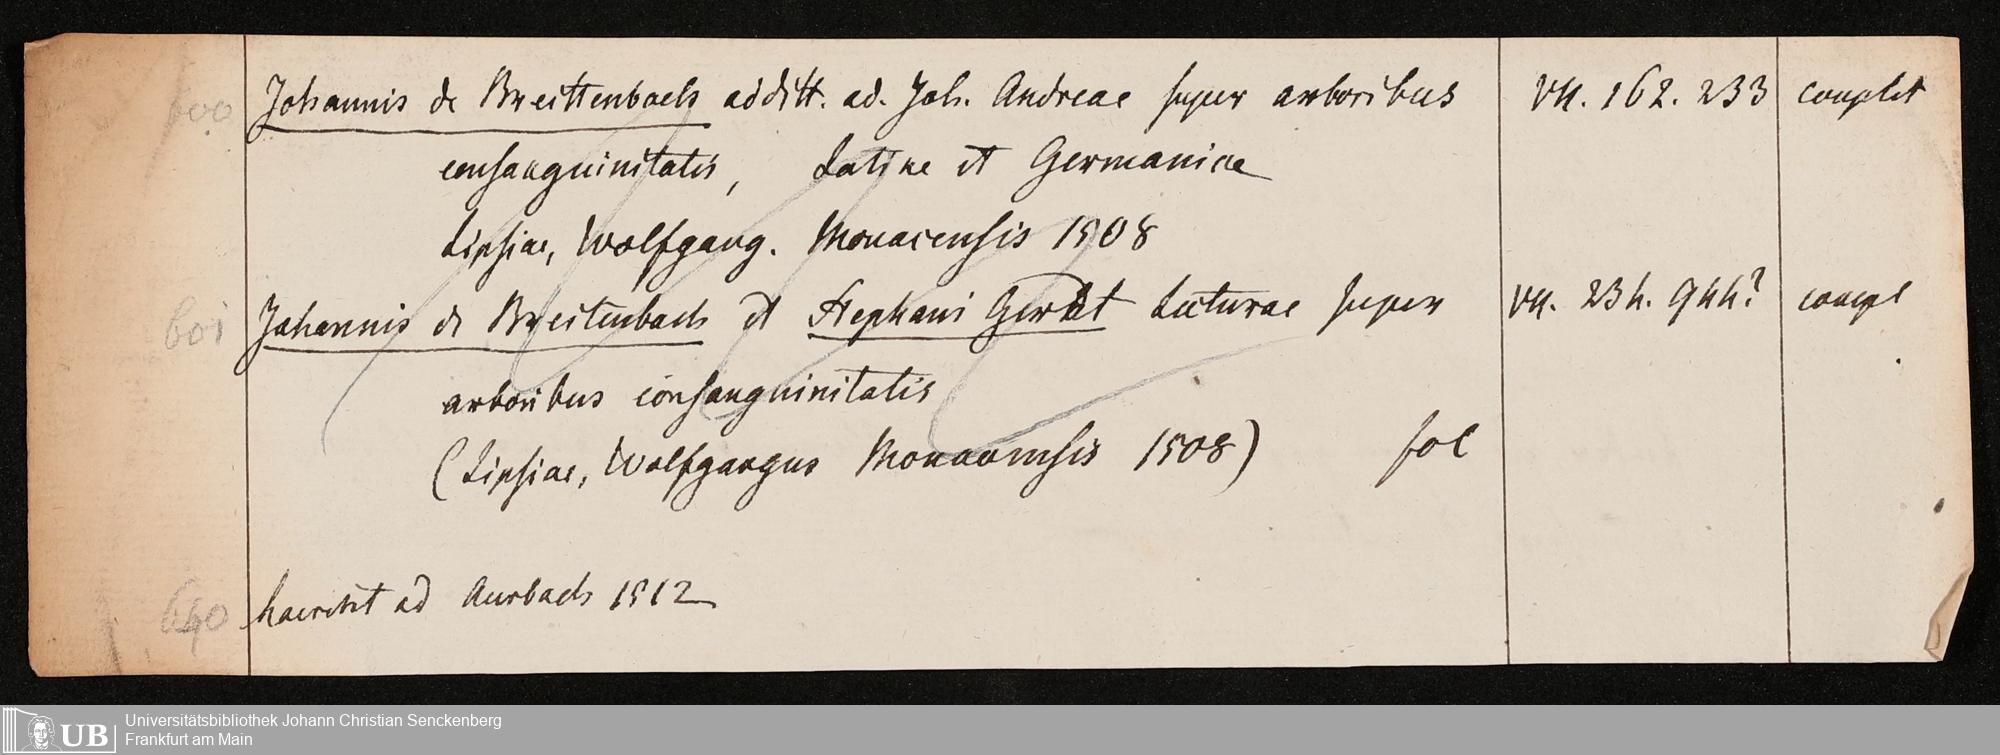 600 Johannis de Breittenbach additt. ad. Joh. Andreae super arboribus VII. 162. 233 complet
consanguinitatis, Latine et Germanice
Lipsiae, Wolfgang. Monacensis 1508
601 Johannis de Breitenbach et Stephani Gerdt Lecturae super VII. 234. 944? compl
arboribus consanguinitatis
(Lipsiae, Wolfgangus Monacensis 1508) fol
640 haeret ad Aurbach 1512
Universitätsbibliothek Johann Christian Senckenberg
UB Frankfurt am Main